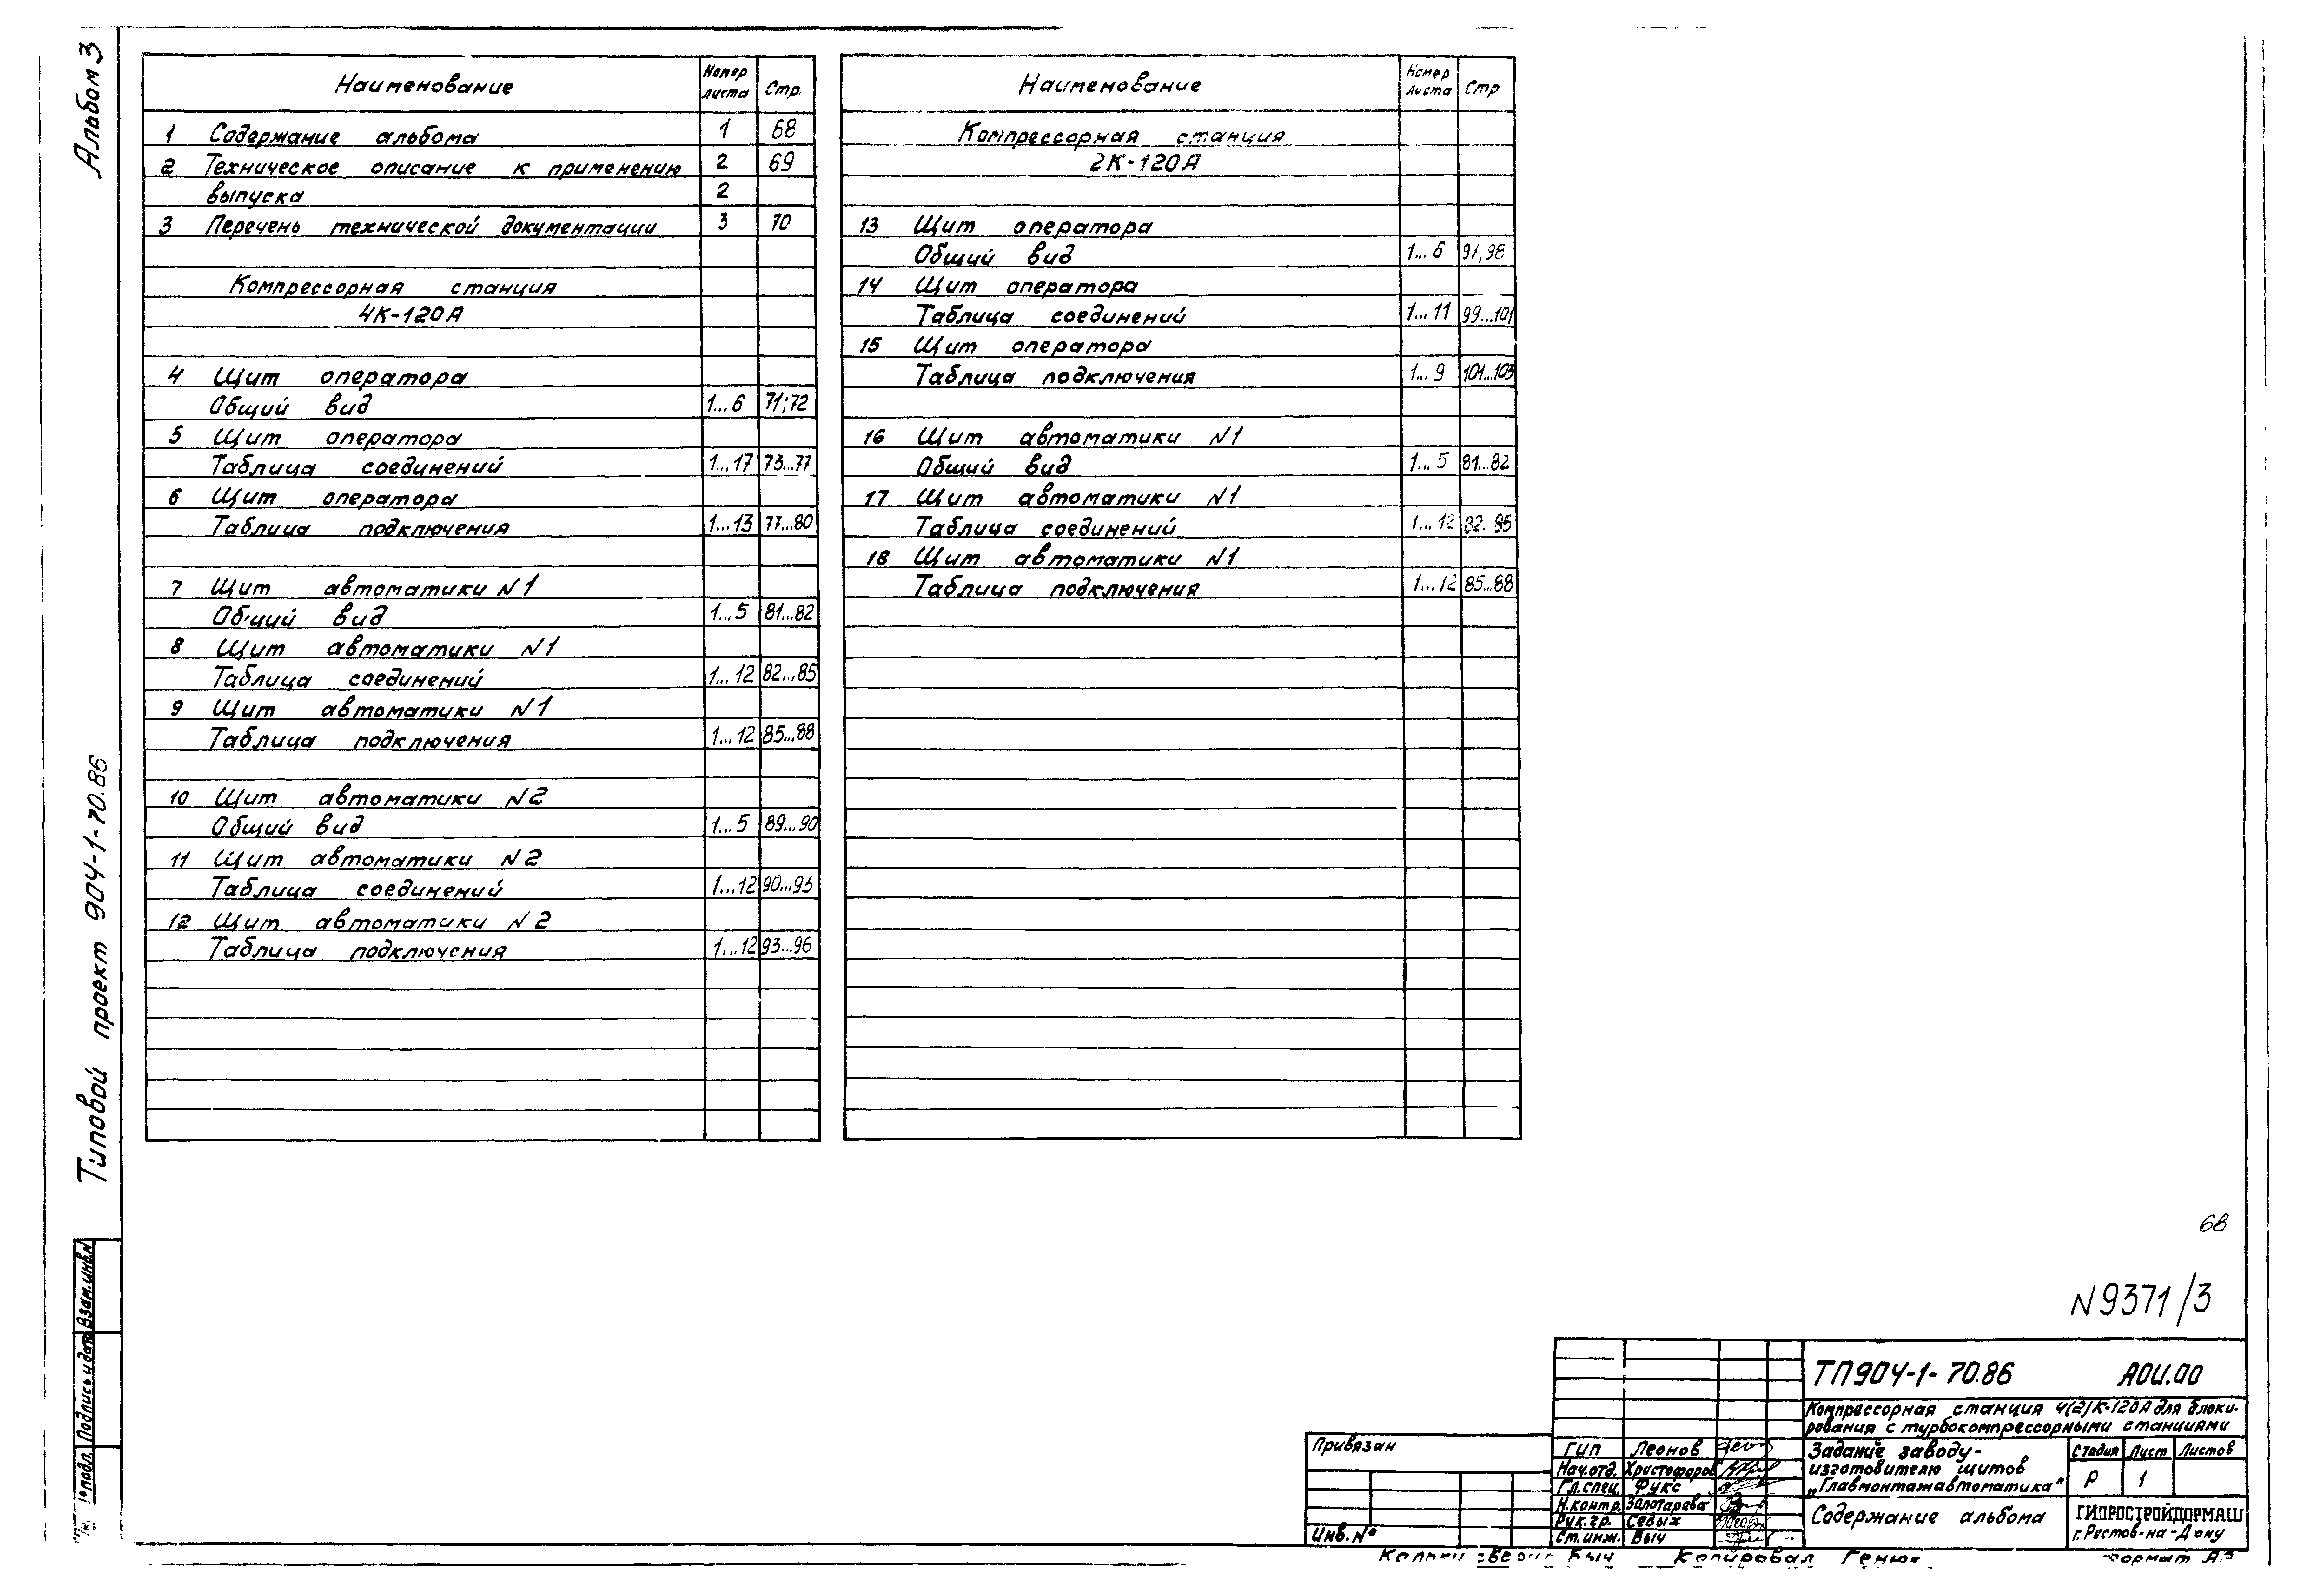 Альбом 3
Типовой проект 904-1-70.86
Наименование Номер листа Стр.
1 Содержание альбома 1 68
2 Техническое описание к применению 2 69
выпуска 2
3 Перечень технической документации 3 70
Компрессорная станция
4К-120А
4 Щит оператора
Общий вид 1...6 71;72
5 Щит оператора
Таблица соединений 1...17 73...77
6 Щит оператора
Таблица подключения 1...13 77...80
7 Щит автоматики N1
Общий вид 1...5 81...82
8 Щит автоматики N1
Таблица соединений 1...12 82...85
9 Щит автоматики N1
Таблица подключения 1...12 85...88
10 Щит автоматики N2
Общий вид 1...5 89...90
11 Щит автоматики N2
Таблица соединений 1...12 90...93
12 Щит автоматики N2
Таблица подключения 1...12 93...96
Наименование Номер листа Стр
Компрессорная станция
2К-120А
13 Щит оператора
Общий вид 1...6 97,98
14 Щит оператора
Таблица соединений 1...11 99...101
15 Щит оператора
Таблица подключения 1...9 101...103
16 Щит автоматики N1
Общий вид 1...5 81...82
17 Щит автоматики N1
Таблица соединений 1...12 82..85
18 Щит автоматики N1
Таблица подключения 1...12 85...88
68
N9371/3
ТП904-1-70.86 АОИ.00
Компрессорная станция 4(2)К-120А для блоки-
рования с турбокомпрессорными станциями
Задание заводу-
изготовителю щитов
„Главмонтажавтоматика"
Стадия Лист Листов
Р 1
Содержание альбома
ГИПРОСТРОЙДОРМАШ
г. Ростов-на-Дону
Привязан
Инв. №
ГИП Леонов
Нач.отд. Христофоров
Гл.спец. Фукс
Н.контр. Золотарева
Рук.гр. Седых
Ст.инж. Быч
Взам.инв.N
Подпись и дата
подл.
Копировал Генюк
Формат А3